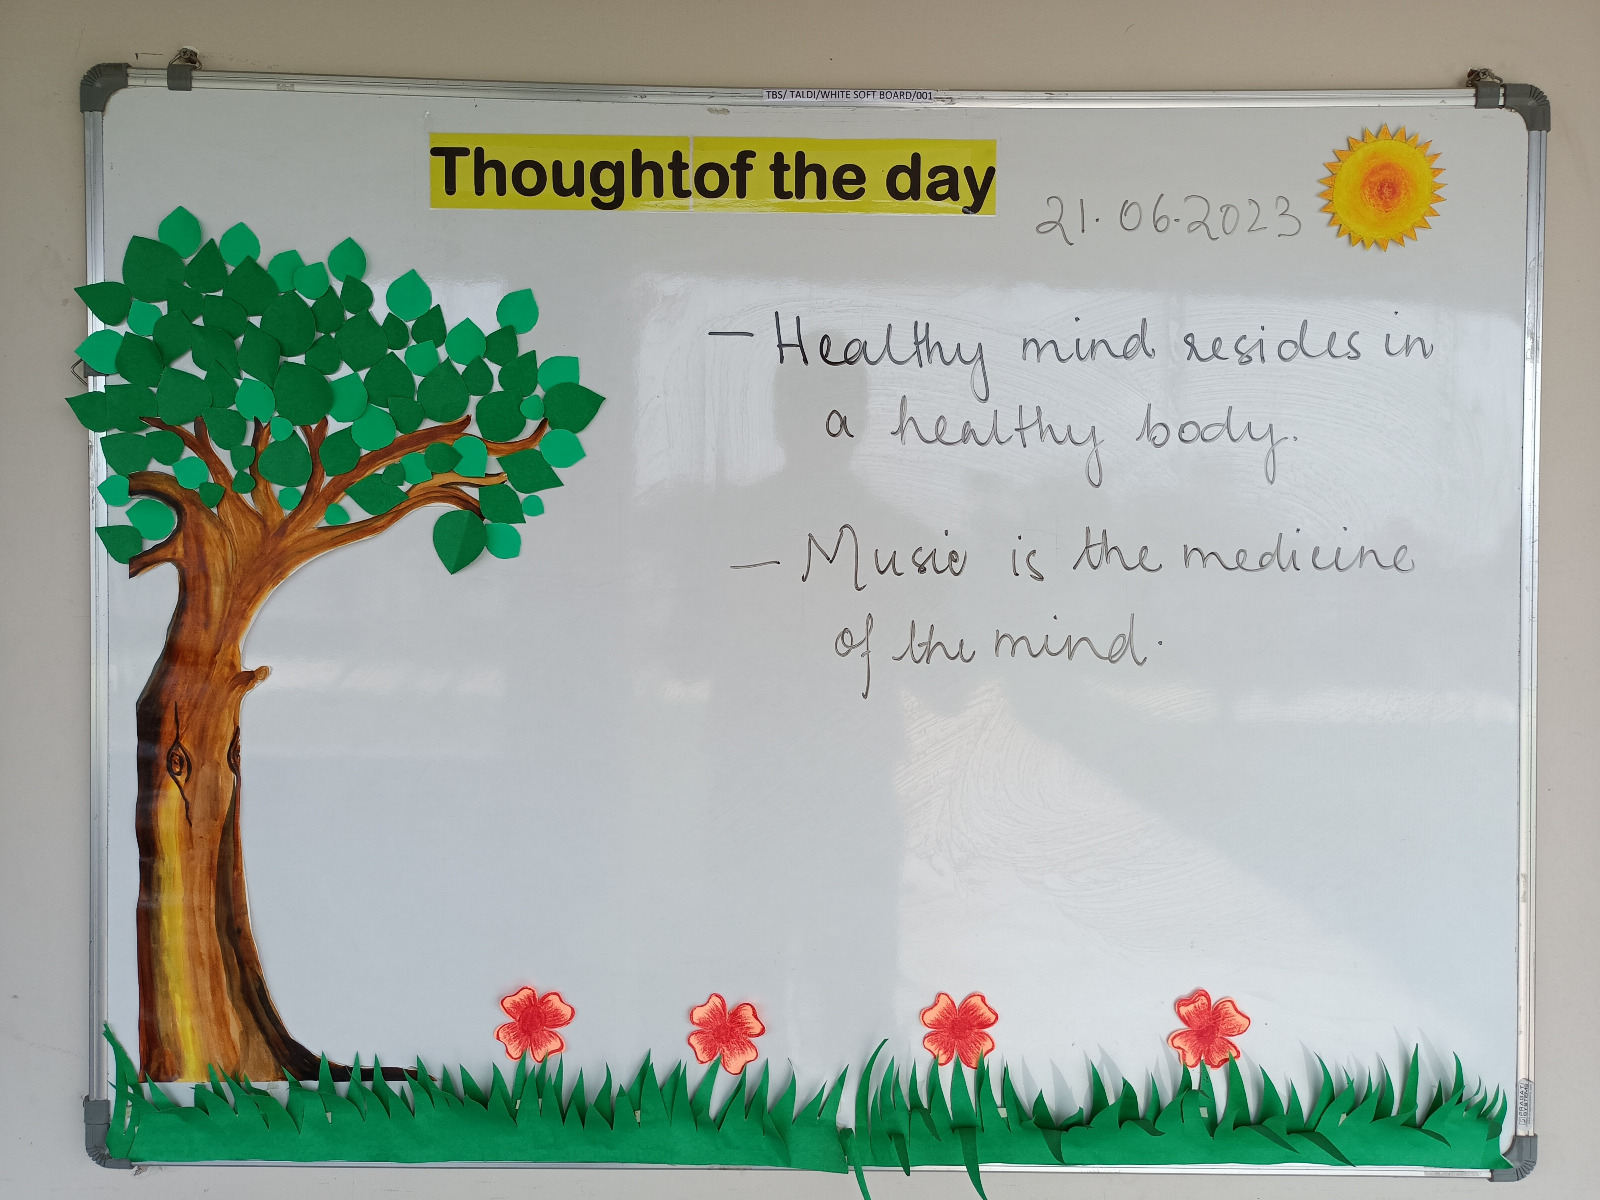 TBS/ TALDI/WHITE SOFT BOARD/001
Thought of the day
21.06.2023
- Healthy mind resides in
a healthy body.
- Music is the medicine
of the mind.
PRAGATI SYSTEMS